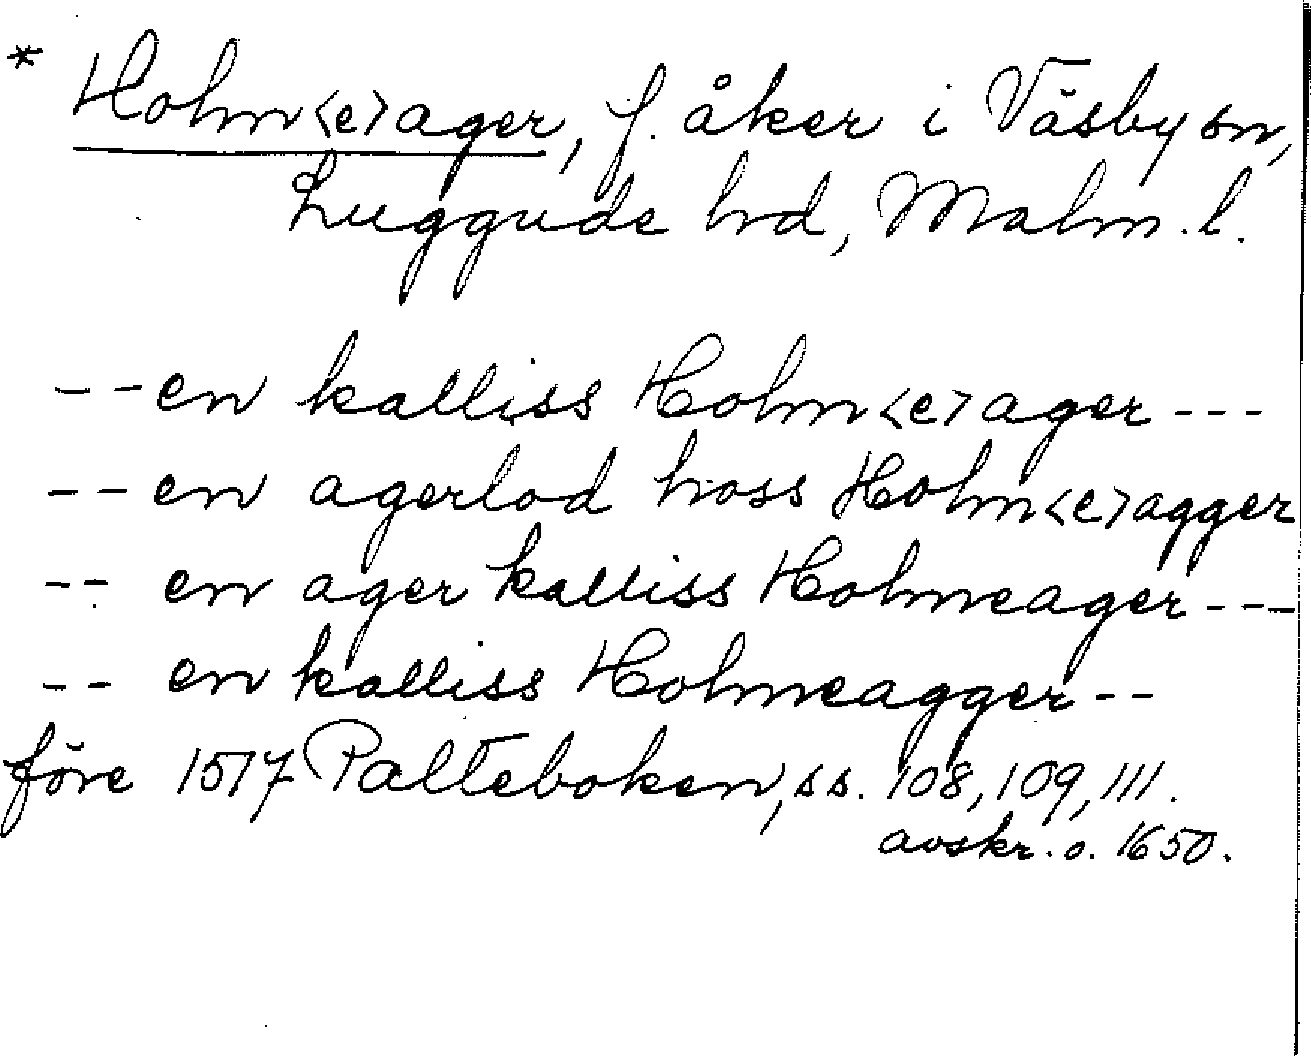 * Holm<e>ager, f. åker i Väsby sn,
Luggude hd, Malm. l.
-- en kalliss Holm<e>ager ---
-- en agerlod hoss Holm<e>agger
-- en ager kalliss Holmeager ---
-- en kalliss Holmeagger --
före 1517 Palteboken, ss. 108, 109, 111.
avskr. o. 1650.